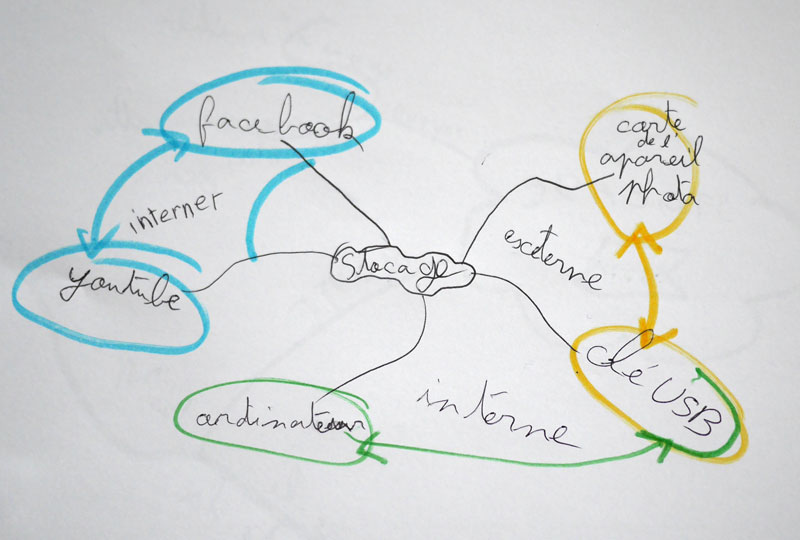 facebook
carte
de l'
apareil
photo
interner
exeterne
youtube
Stocage
clé USB
interne
ordinateur